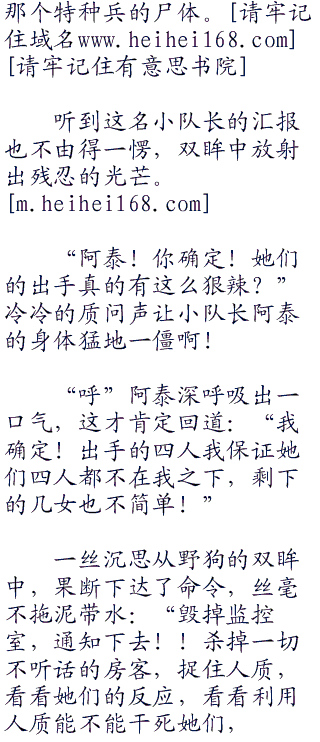 那个特种兵的尸体。[请牢记
住域名www.heihei168.com]
[请牢记住有意思书院]
听到这名小队长的汇报
也不由得一愣，双眸中放射
出残忍的光芒。
[m.heihei168.com]
“阿泰！你确定！她们
的出手真的有这么狠辣？”
冷冷的质问声让小队长阿泰
的身体猛地一僵啊！
“呼”阿泰深呼吸出一
口气，这才肯定回道：“我
确定！出手的四人我保证她
们四人都不在我之下，剩下
的几女也不简单！”
一丝沉思从野狗的双眸
中，果断下达了命令，丝毫
不拖泥带水：“毁掉监控
室，通知下去！！杀掉一切
不听话的房客，捉住人质，
看看她们的反应，看看利用
人质能不能干死她们，